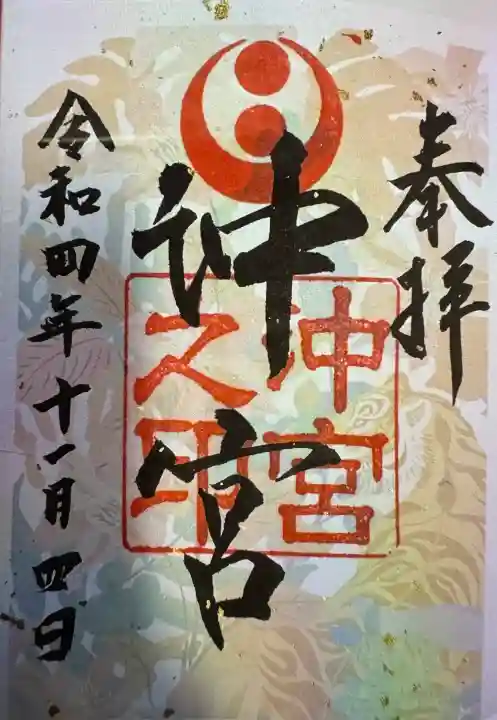 奉拝
沖宮
沖宮之印
令和四年十一月四日